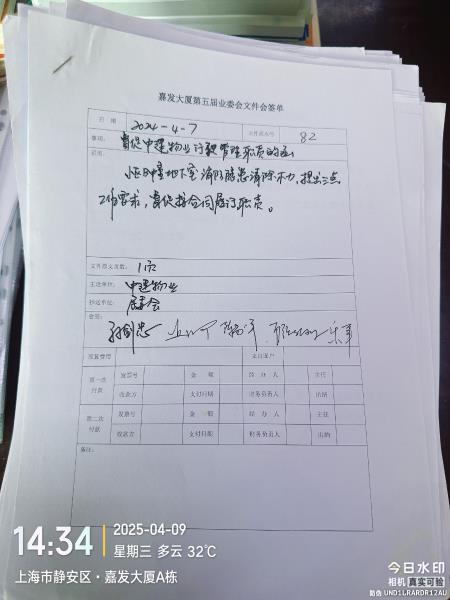 嘉发大厦第五届业委会文件会签单
日 期 2024-4-7 文件流水号 82
事项: 督促中建物业行驶管理职责的函
说明:
作时管地下室消防隐患消除不力,提出三点
工作要求,督促按合同履行职责。
文件原文页数: 1页
主送单位: 中建物业
抄送单位: 居委会
会签:
预算费用 支出账户
第一次付款 发票号 金 额 经 办 人 主任
收款方 支付日期 财务负责人 出纳
第二次付款 发票号 金 额 经 办 人 主任
收款方 支付日期 财务负责人 出纳
备注:
14:34 2025-04-09
星期三 多云 32℃
上海市静安区·嘉发大厦A栋
今日水印
相机 真实可验
防伪 UND1LRARDR12AU